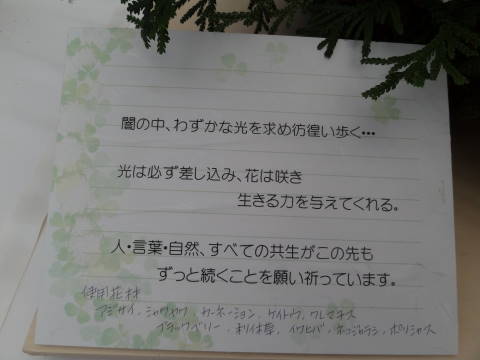 闇の中、わずかな光を求め彷徨い歩く・・・
光は必ず差し込み、花は咲き
生きる力を与えてくれる。
人・言葉・自然、すべての共生がこの先も
ずっと続くことを願い祈っています。
使用花材
アジサイ、シャクヤク、カーネーション、ケイトウ、クレマチス
ブラックベリー、キリイチゴ、イワヒバ、ネコジャラシ、ポリシャス